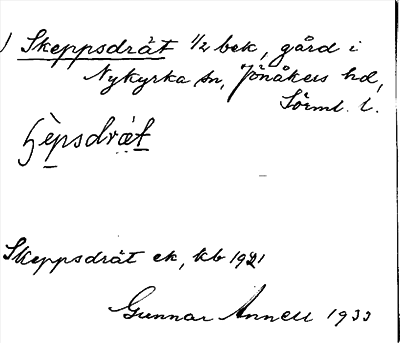 ) Skeppsdråt 1/2 bek, gård i
Nykyrka sn, Jönåkers hd,
Sörml. l.
Skeppsdråt ek, kb 1921
Gunnar Annell 1933